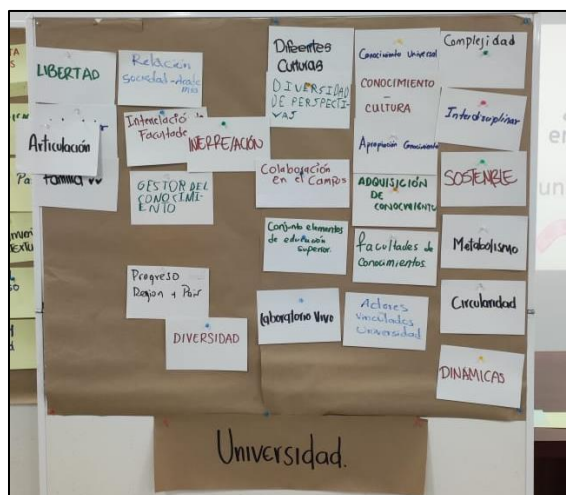 LIBERTAD
Articulación
Familia
Relación
Sociedad-Academia
Interrelación
Facultade
INERRELACIÓN
GESTOR DEL
CONOCIMI-
ENTO
Progreso
Region + Pais
DIVERSIDAD
Difeentes
Culturas
DIVERSIDAD
DE PERSPECTI-
VAS
Colaboración
en el Campus
Conjunto elementos
de educación
superior.
Laboratorio Vivo
Conocimiento Universal
CONOCIMIENTO
-
CULTURA
Apropiación Conocimiento
ADQUISICIÓN
DE
CONOCIMIENTO
Facultades de
Conocimientos.
Actores
vinculados
Universidad
Complejidad
Interdisciplinar
SOSTENIBLE
Metabolismo
Circularidad
DINÁMICAS
Universidad.